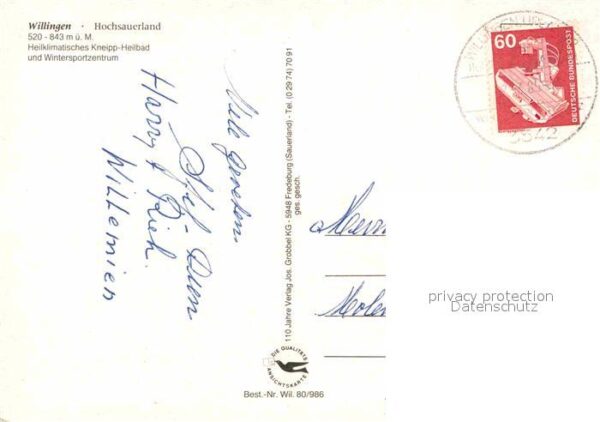 Willingen · Hochsauerland
520 - 843 m ü. M.
Heilklimatisches Kneipp-Heilbad
und Wintersportzentrum
Vele groeten
Harry & Rieh.
Willemien
110 Jahre Verlag Jos. Grobbel KG - 5948 Fredeburg (Sauerland) - Tel. (0 29 74) 70 91
ges. gesch.
DIE QUALITÄTS
ANSICHTSKARTE
Best.-Nr. Wil. 80/986
60
DEUTSCHE BUNDESPOST
3542
Molen
privacy protection
Datenschutz